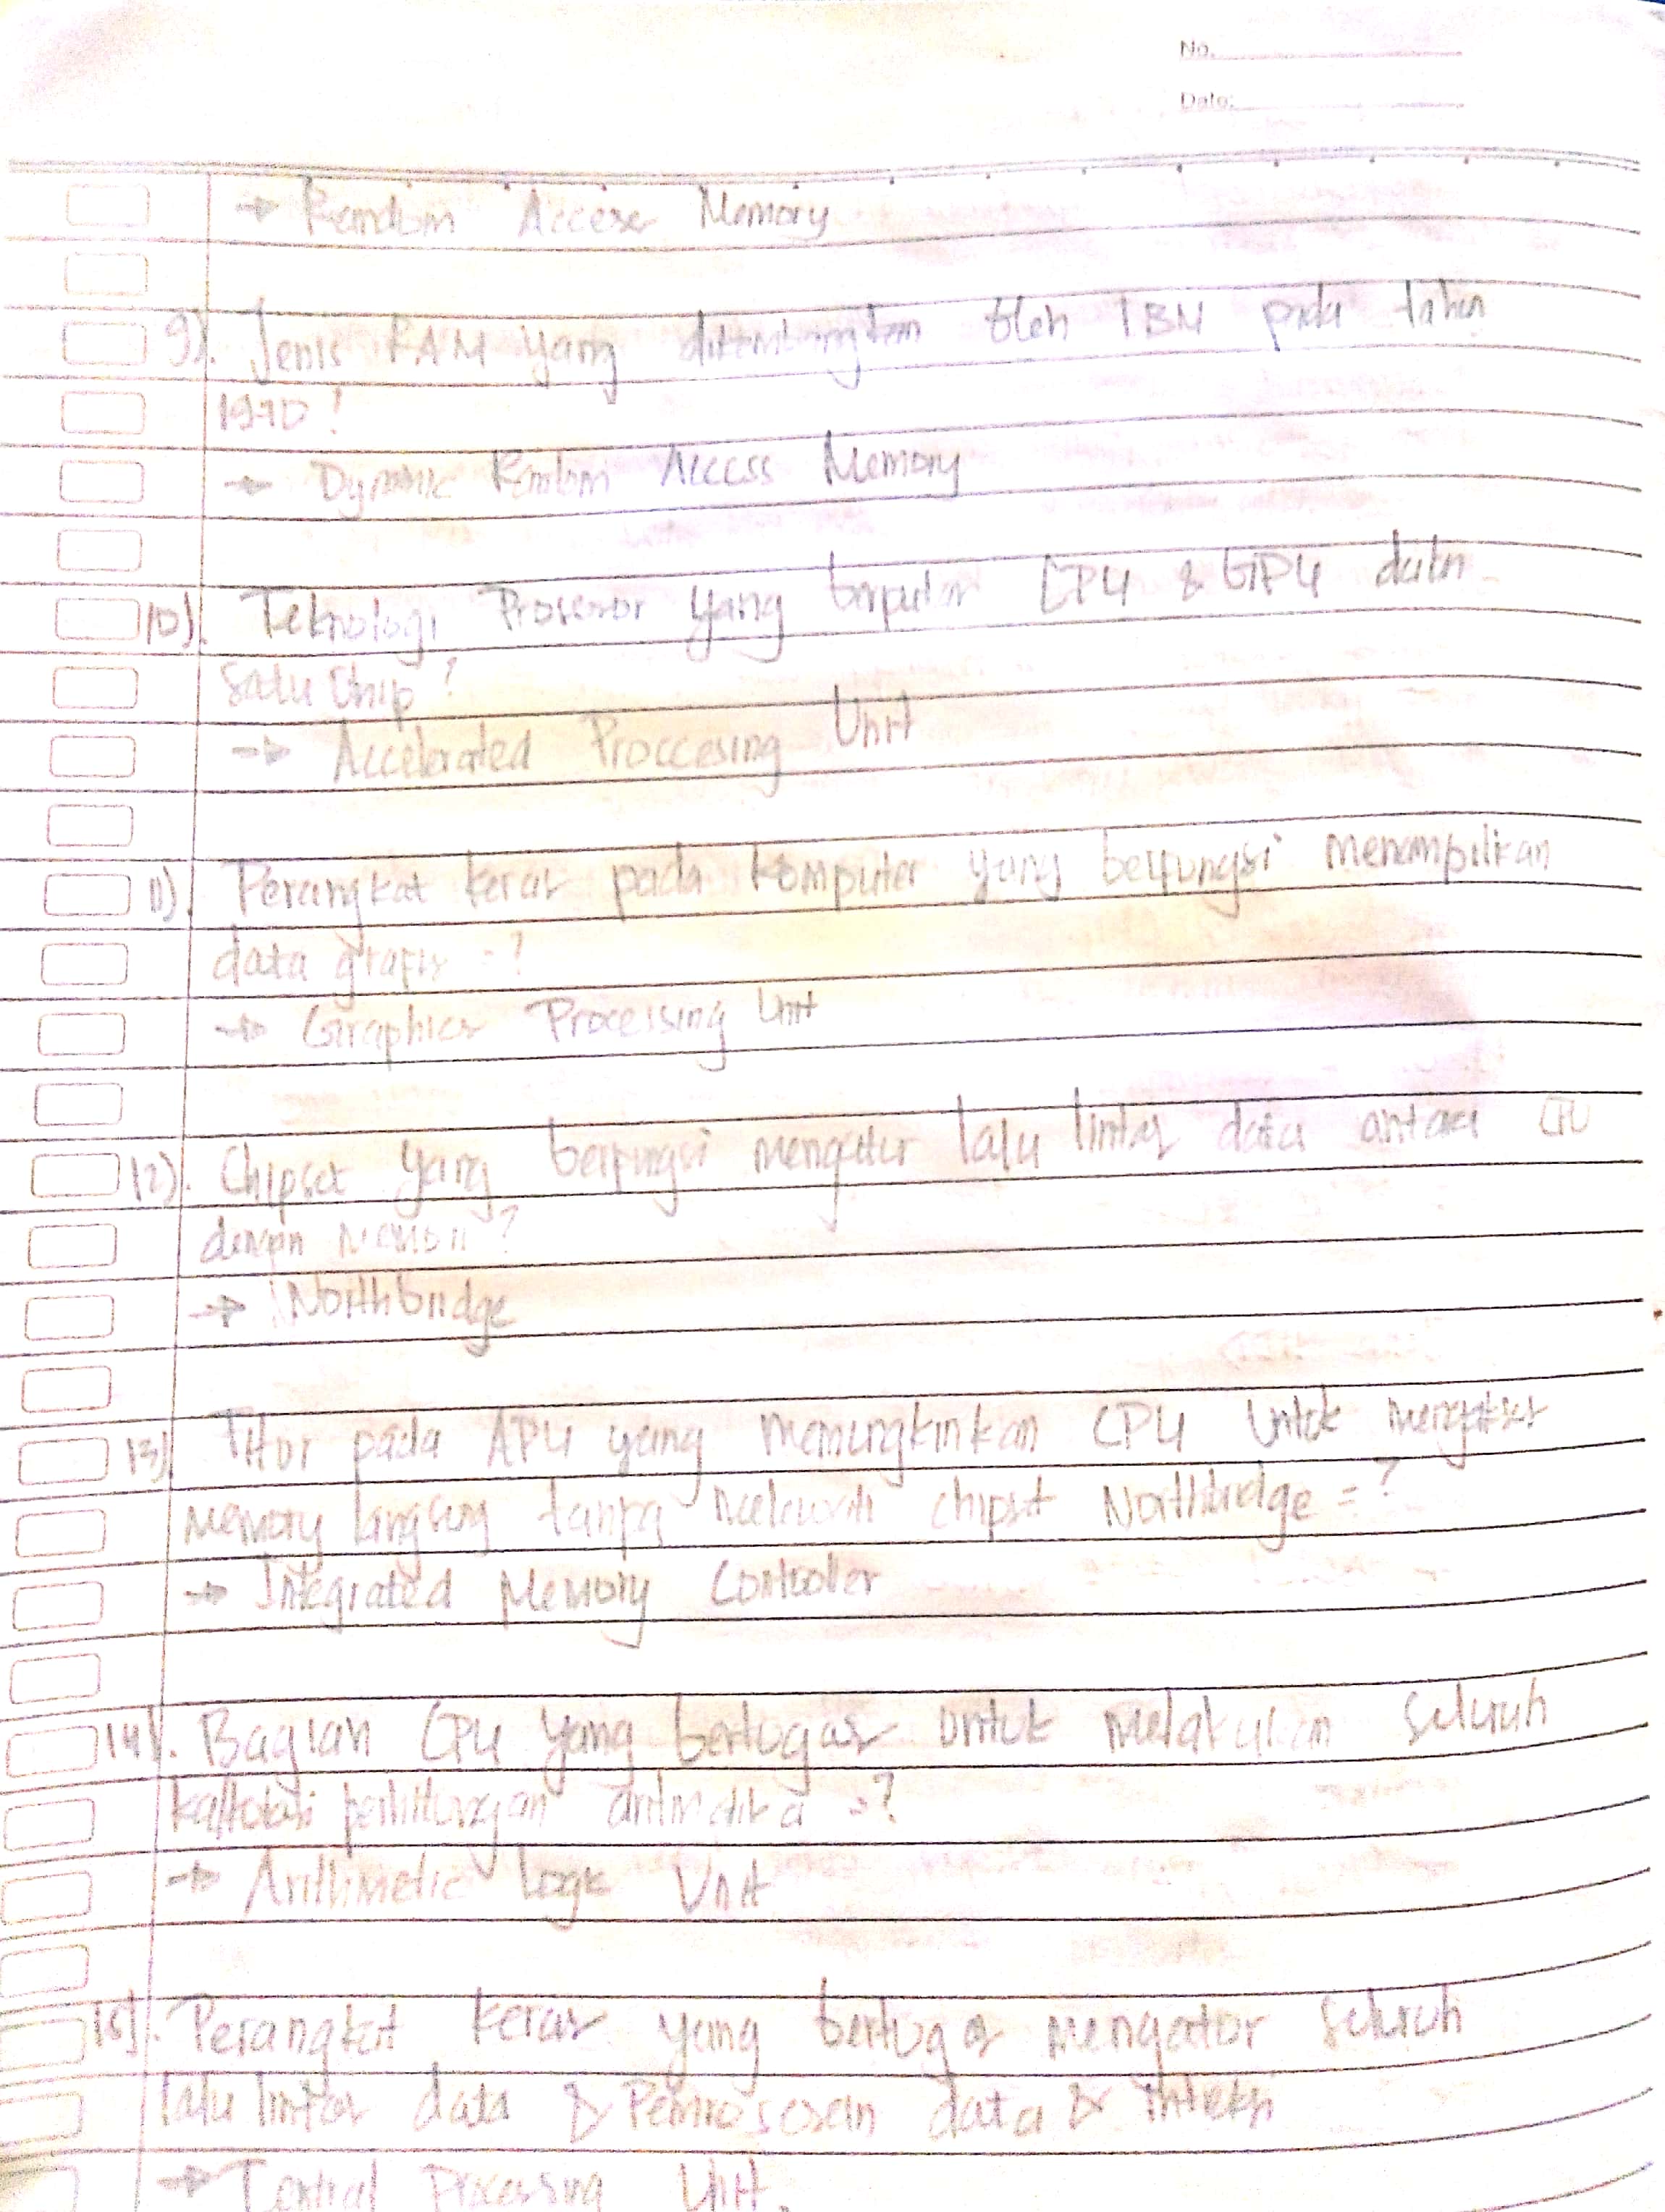 No.
Date:
→ Random Access Memory
9). Jenis RAM yang dikembangkan oleh IBM pada tahun
1970!
→ Dynamic Random Access Memory
10). Teknologi Prosesor yang CPU & GPU dalam
Satu Chip?
→ Accelerated Proccesing Unit
11). Perangkat keras pada komputer yang berfungsi menampilkan
data grafis = ?
→ Graphics Processing Unit
12). Chipset yang berfungsi mengatur lalu lintas data antara CPU
dengan Memori?
→ Northbridge
13) Fitur pada APU yang memungkinkan CPU Untuk mengakses
memory langsung tanpa melewati chipset Northbridge = ?
→ Integrated Memory Controller
14). Bagian CPU yang bertugas untuk melakukan seluruh
perhitungan aritmatika = ?
→ Arithmetic Logic Unit
15). Perangkat keras yang bertugas mengatur seluruh
lalu lintas data & Pemrosesan data &
→ Central Processing Unit.